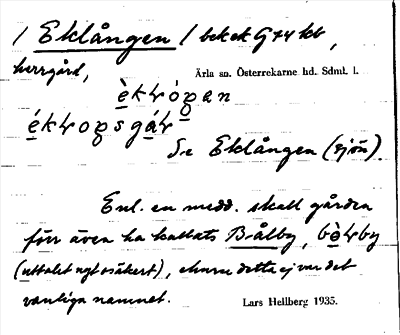 / Eklången / bebck G74 kb,
herrgård, Ärla sn. Österrekarne hd. Sdml. l.
èkłóŋen
ékłoŋsgáɽ
Se Eklången (sjön).
Enl. en medd. skall gården
förr även ha kallats B-ålby, bòɽby
(uttalet ngt osäkert), ehuru detta ej var det
vanliga namnet. Lars Hellberg 1935.